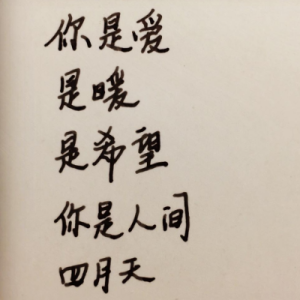 你是爱
是暖
是希望
你是人间
四月天